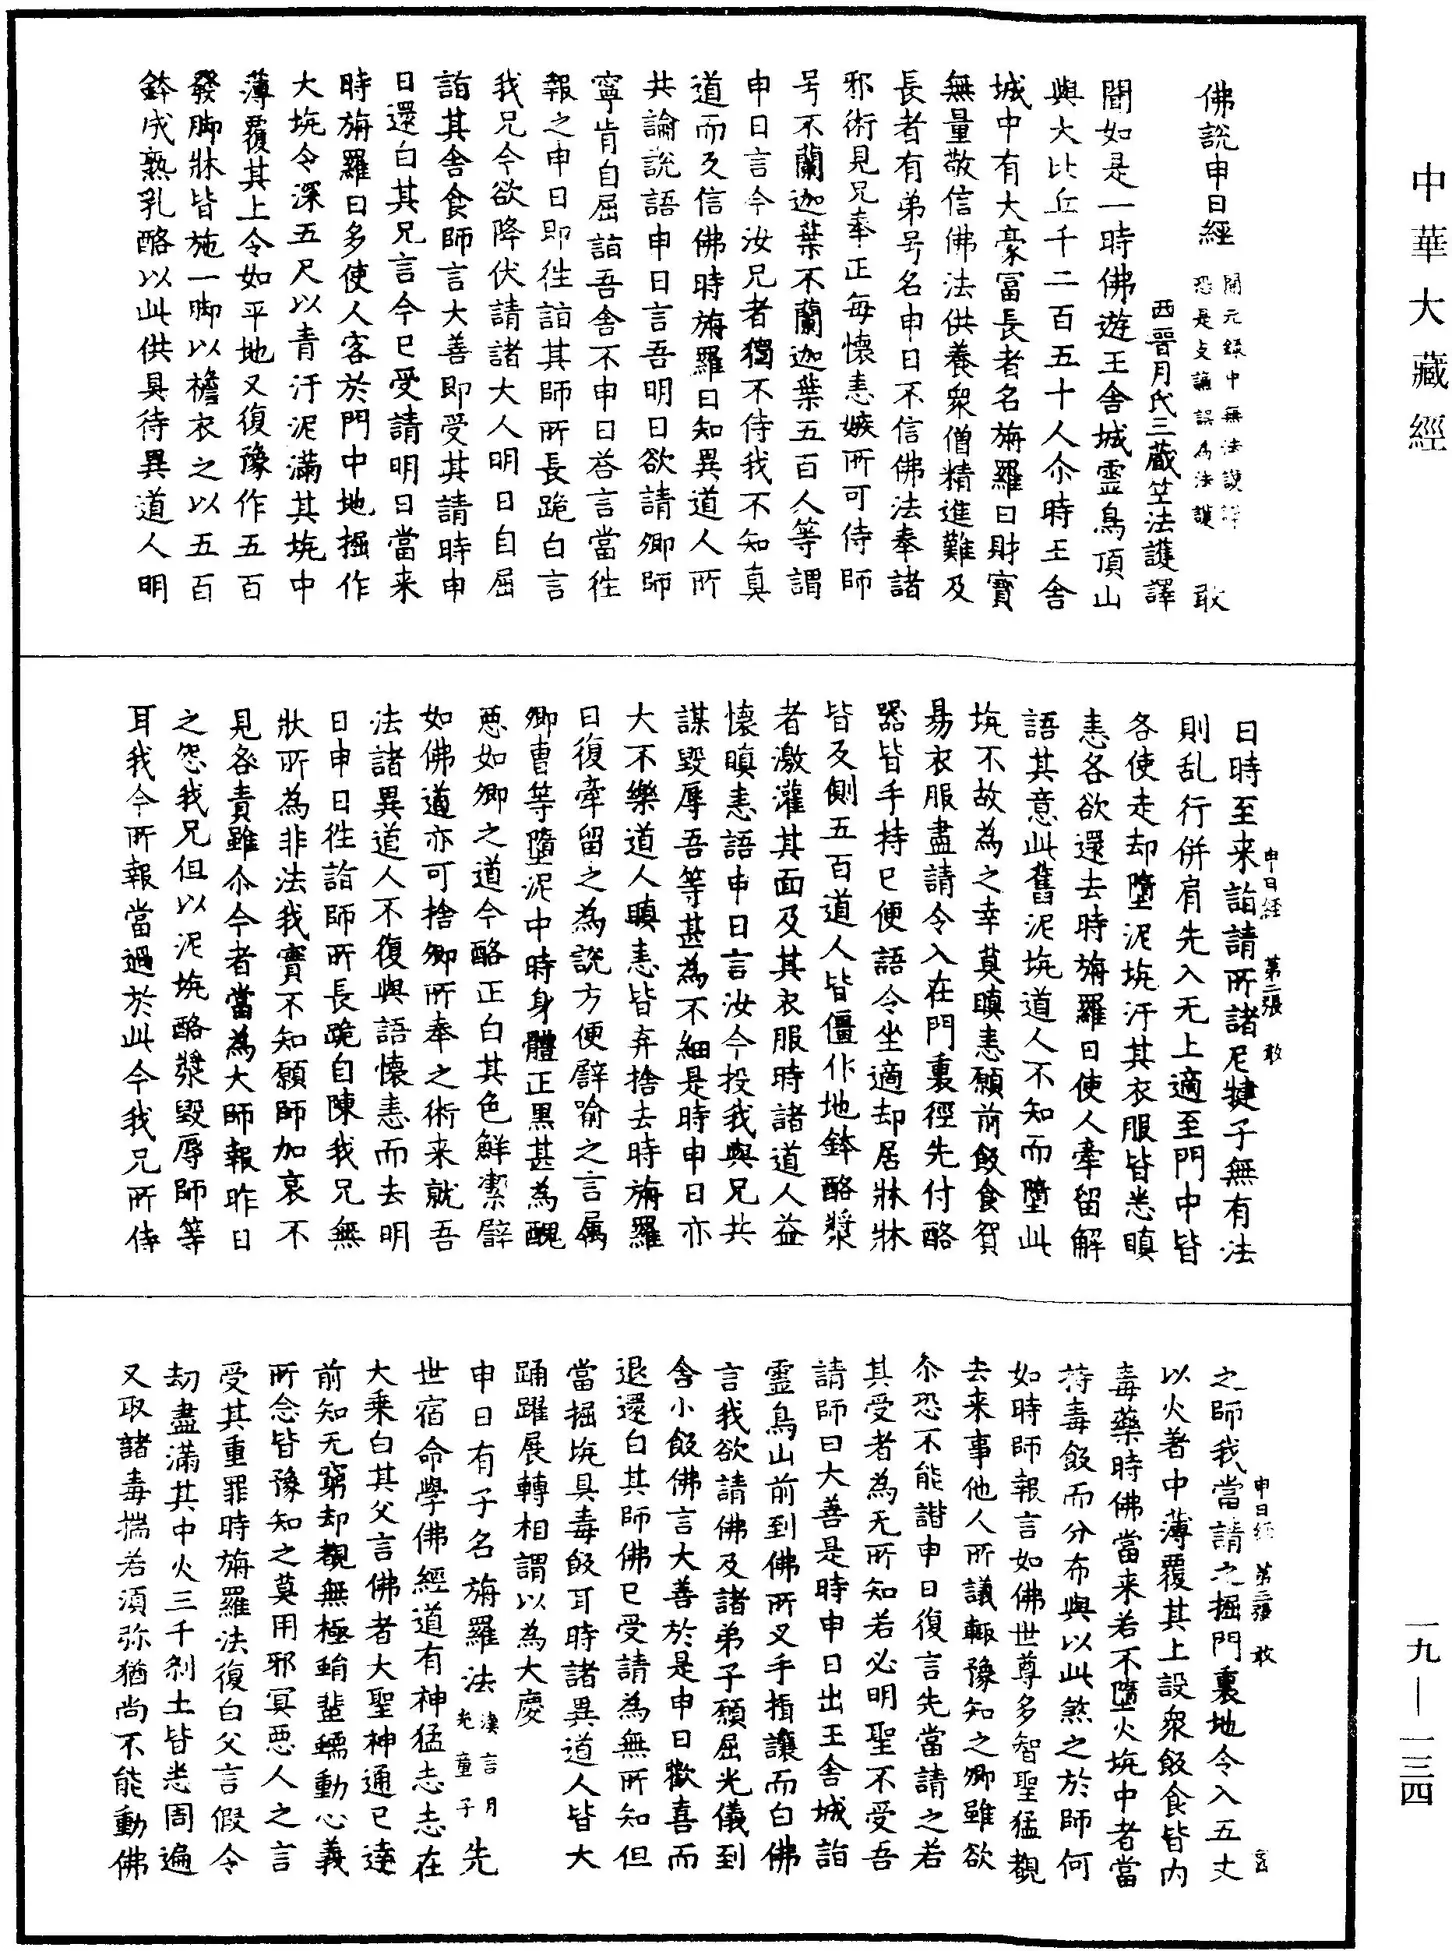 中華大藏經
佛說申日經 開元錄中無法護譯恐是支謙誤為法護 敢
西晉月氏三藏竺法護譯
聞如是一時佛遊王舍城靈鳥頂山
與大比丘千二百五十人尒時王舍
城中有大豪冨長者名旃羅日財寳
無量敬信佛法供養衆僧精進難及
長者有弟号名申日不信佛法奉諸
邪術見兄奉正每懷恚嫉所可侍師
号不蘭迦葉不蘭迦葉五百人等謂
申日言今汝兄者獨不待我不知真
道而反信佛時旃羅日知異道人所
共論說語申日言吾明日欲請卿師
寧肯自屈詣吾舍不申日荅言當往
報之申日即往詣其師所長跪白言
我兄今欲降伏請諸大人明日自屈
詣其舍食師言大善即受其請時申
日還白其兄言今已受請明日當来
時旃羅日多使人客於門中地掘作
大坑令深五尺以青汙泥滿其坑中
薄覆其上令如平地又復豫作五百
發脚牀皆施一脚以襜衣之以五百
鉢成熟乳酪以此供具待異道人明
申日經 第二張 敢
日時至来詣請所諸尼揵子無有法
則乱行併肩先入无上適至門中皆
各使走却墮泥坑汙其衣服皆恚瞋
恚各欲還去時旃羅日使人牽留解
語其意此舊泥坑道人不知而墮此
坑不故為之幸莫瞋恚願前飯食貿
易衣服盡請令入在門裏徑先付酪
器皆手持已便語令坐適却居牀牀
皆反側五百道人皆僵仆地鉢酪漿
者激灌其面及其衣服時諸道人益
懷瞋恚語申日言汝今投我與兄共
謀毀辱吾等甚為不細是時申日亦
大不樂道人瞋恚皆弃捨去時旃羅
日復牽留之為說方便譬喻之言属
卿曹等墮泥中時身體正黒甚為醜
惡如卿之道今酪正白其色鮮潔譬
如佛道亦可捨卿所奉之術来就吾
法諸異道人不復與語懷恚而去明
日申日往詣師所長跪自陳我兄無
狀所為非法我實不知願師加哀不
見咎責雖尒今者當為大師報昨日
之怨我兄但以泥坑酪漿毀辱師等
耳我今所報當過於此今我兄所侍
申日經 第三張 敢
之師我當請之掘門裏地令入五丈
以火著中薄覆其上設衆飯食皆内
毒藥時佛當来若不墮火坑中者當
持毒飯而分布與以此煞之於師何
如時師報言如佛世尊多智聖猛覩
去来事他人所議輒豫知之卿雖欲
尒恐不能諧申日復言先當請之若
其受者為无所知若必明聖不受吾
請師曰大善是時申日出王舍城詣
靈鳥山前到佛所叉手揖讓而白佛
言我欲請佛及諸弟子願屈光儀到
舍小飯佛言大善於是申日歡喜而
退還白其師佛已受請為無所知但
當掘坑具毒飯耳時諸異道人皆大
踊躍展轉相謂以為大慶
申日有子名旃羅法 漢言月光童子 先
世宿命學佛經道有神猛志志在
大乗白其父言佛者大聖神通已達
前知无窮却覩無極蜎蜚蠕動心義
所念皆豫知之莫用邪冥惡人之言
受其重罪時旃羅法復白父言假令
劫盡滿其中火三千刹土皆恚周遍
又取諸毒揣若湏弥猶尚不能動佛
一九—一三四